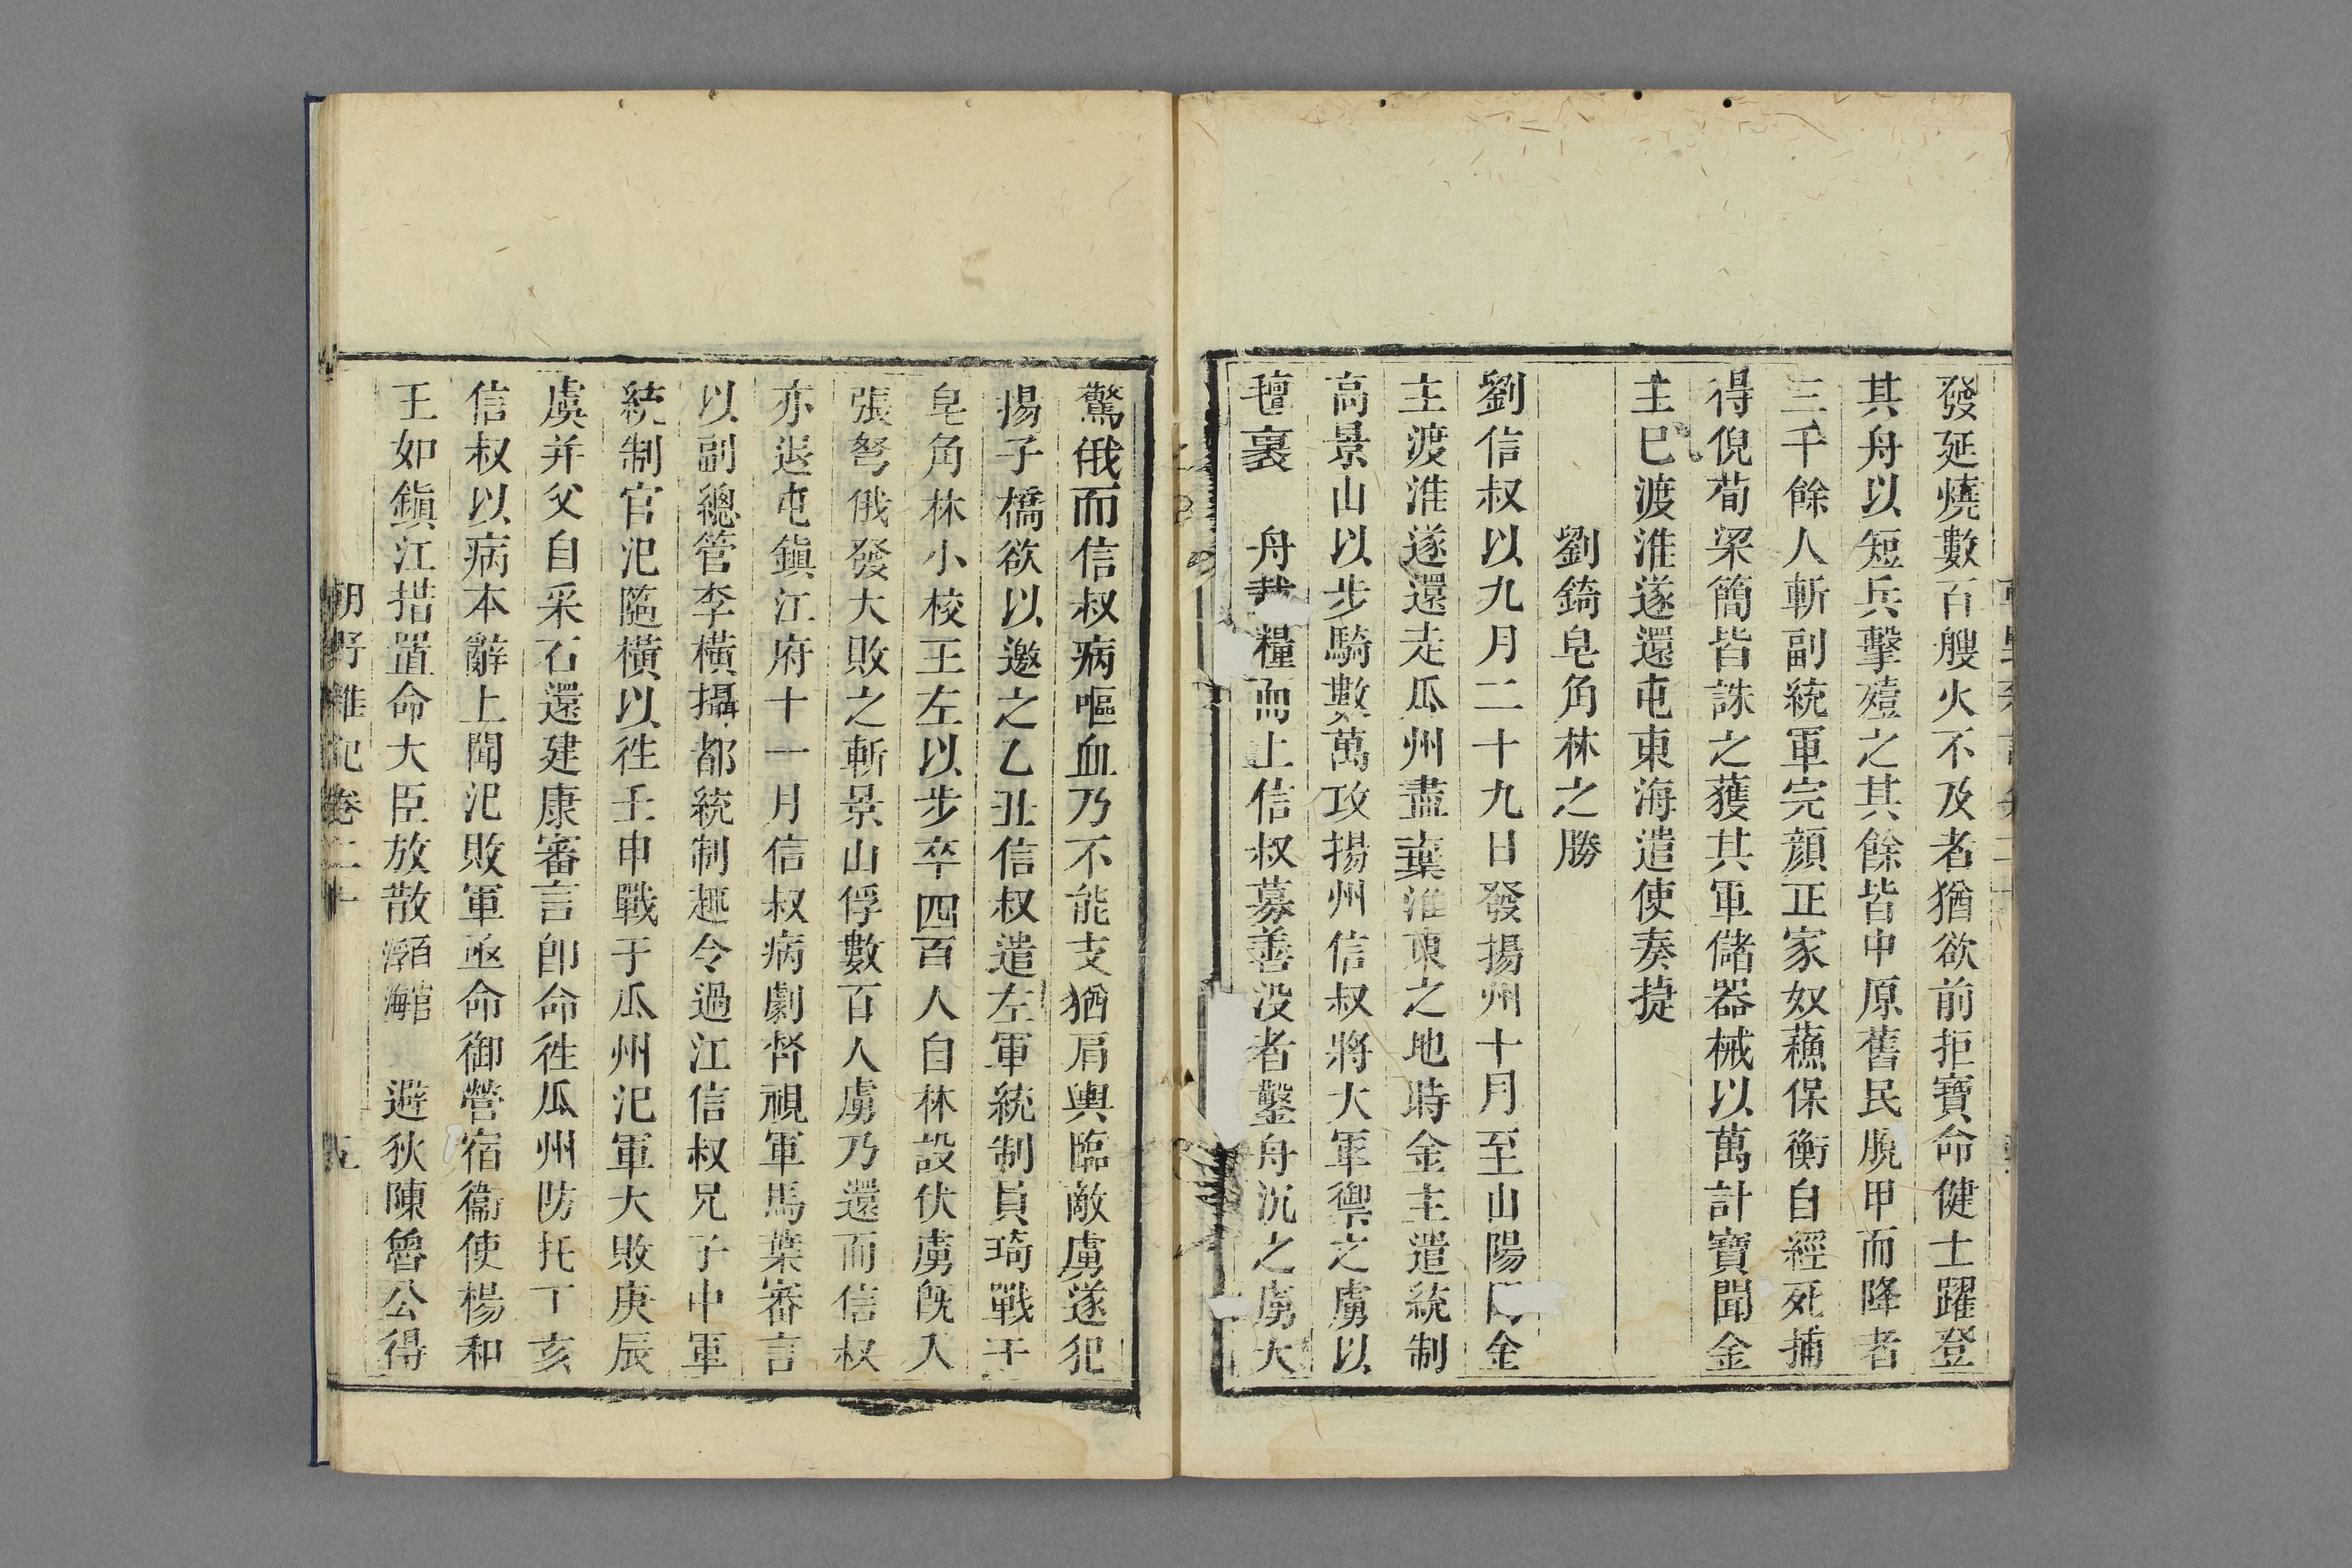 發延燒數百艘火不及者猶欲前拒寶命健士躍登
其舟以短兵擊殪之其餘皆中原舊民脫甲而降者
三千餘人斬副統軍完顏正家奴蘓保衡自經死捕
得倪荀梁簡皆誅之獲其軍儲器械以萬計寶聞金
主巳渡淮遂還屯東海遣使奏捷
劉錡皂角林之勝
劉信叔以九月二十九日發揚州十月至山陽金
主渡淮遂還走瓜州盡棄淮東之地時金主遣統制
高景山以步騎數萬攻揚州信叔將大軍禦之虜以
氊裹舟糧而上信叔募善没者鑿舟沉之虜大
驚俄而信叔病嘔血乃不能支猶肩輿臨敵虜遂犯
揚子橋欲以邀之乙丑信叔遣左軍統制員琦戰于
皂角林小校王左以步卒四百人自林設伏虜旣入
張弩俄發大敗之斬景山俘數百人虜乃還而信叔
亦退屯鎭江府十一月信叔病劇督視軍馬葉審言
以副總管李橫攝都統制趣令過江信叔兄子中軍
統制官汜隨橫以徃壬申戰于瓜州汜軍大敗庚辰
虞并父自采石還建康審言卽命徃瓜州防托丁亥
信叔以病本辭上聞汜敗軍亟命御營宿衞使楊和
王如鎭江措置命大臣放散百官浮海避狄陳魯公得
朝野雜記卷二十 五